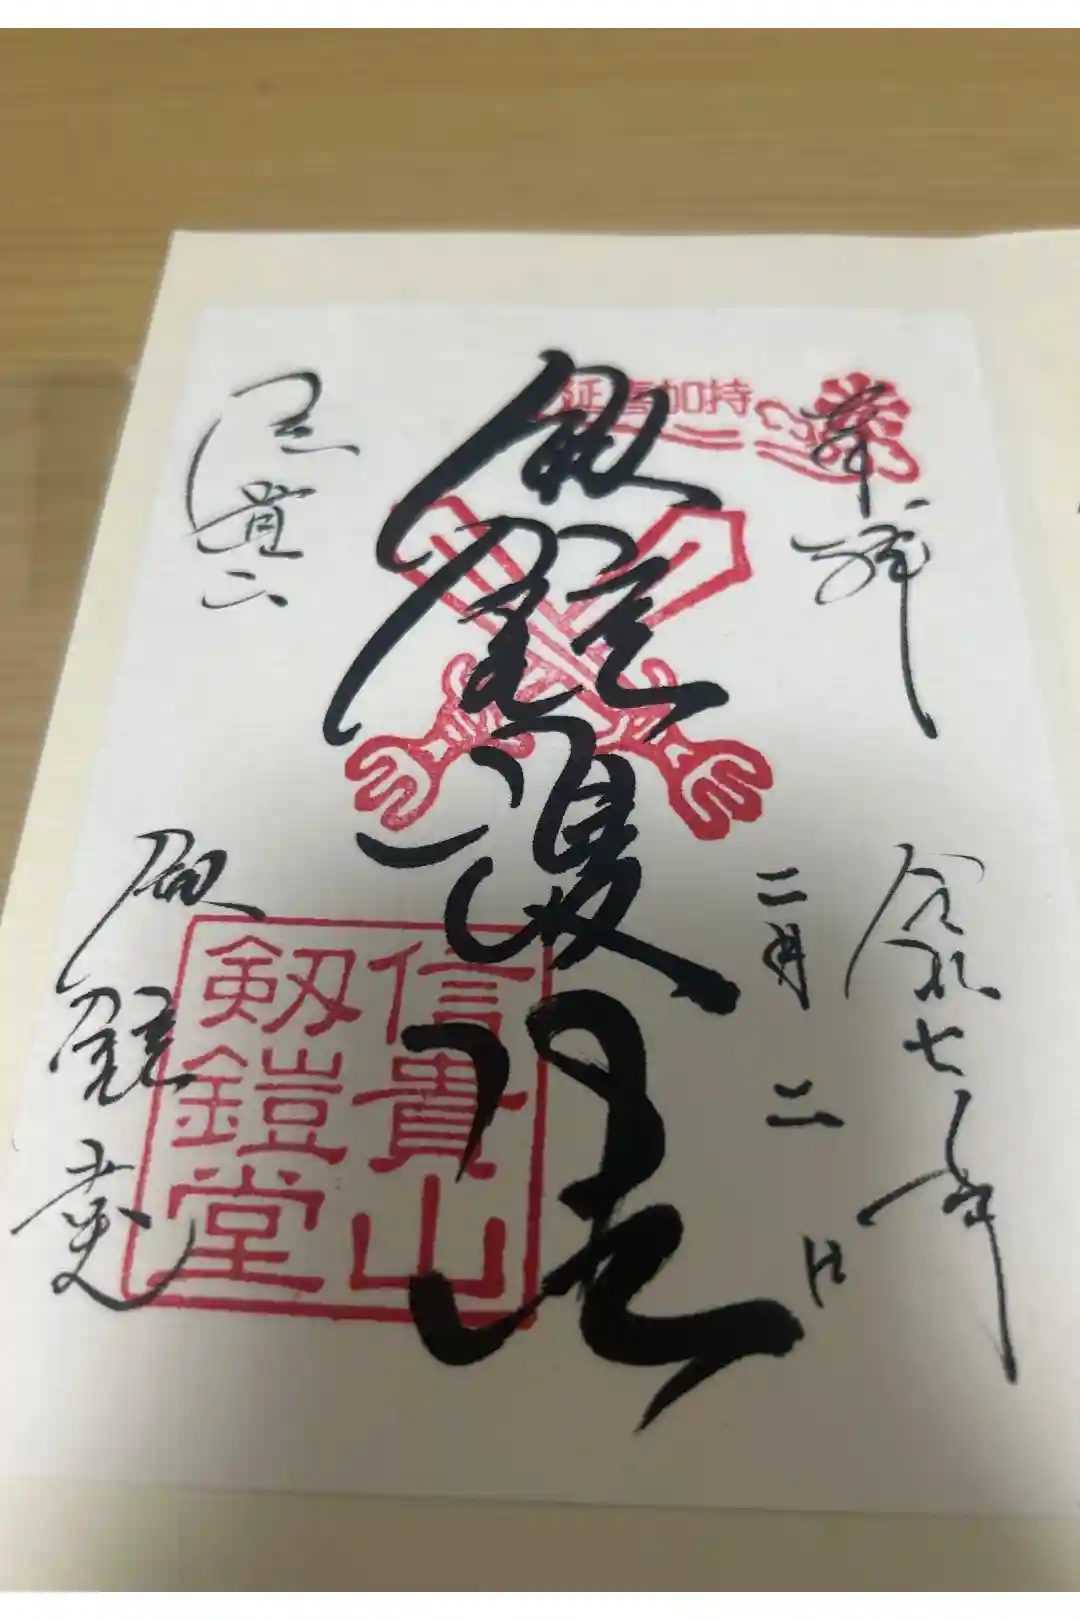 奉拝
令和七年
二月二日
延喜加持
剱鎧護法
信貴山
剱鎧堂
信貴山
剱鎧堂